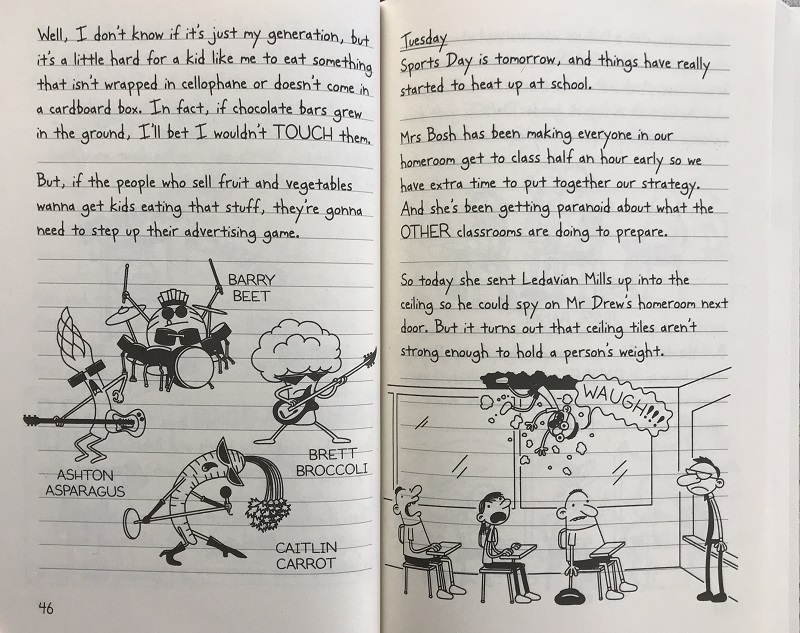 Well, I don't know if it's just my generation, but
it's a little hard for a kid like me to eat something
that isn't wrapped in cellophane or doesn't come in
a cardboard box. In fact, if chocolate bars grew
in the ground, I'll bet I wouldn't TOUCH them.
But, if the people who sell fruit and vegetables
wanna get kids eating that stuff, they're gonna
need to step up their advertising game.
BARRY
BEET
BRETT
BROCCOLI
ASHTON
ASPARAGUS
CAITLIN
CARROT
46
Tuesday
Sports Day is tomorrow, and things have really
started to heat up at school.
Mrs Bosh has been making everyone in our
homeroom get to class half an hour early so we
have extra time to put together our strategy.
And she's been getting paranoid about what the
OTHER classrooms are doing to prepare.
So today she sent Ledavian Mills up into the
ceiling so he could spy on Mr Drew's homeroom next
door. But it turns out that ceiling tiles aren't
strong enough to hold a person's weight.
WAUGH!!!